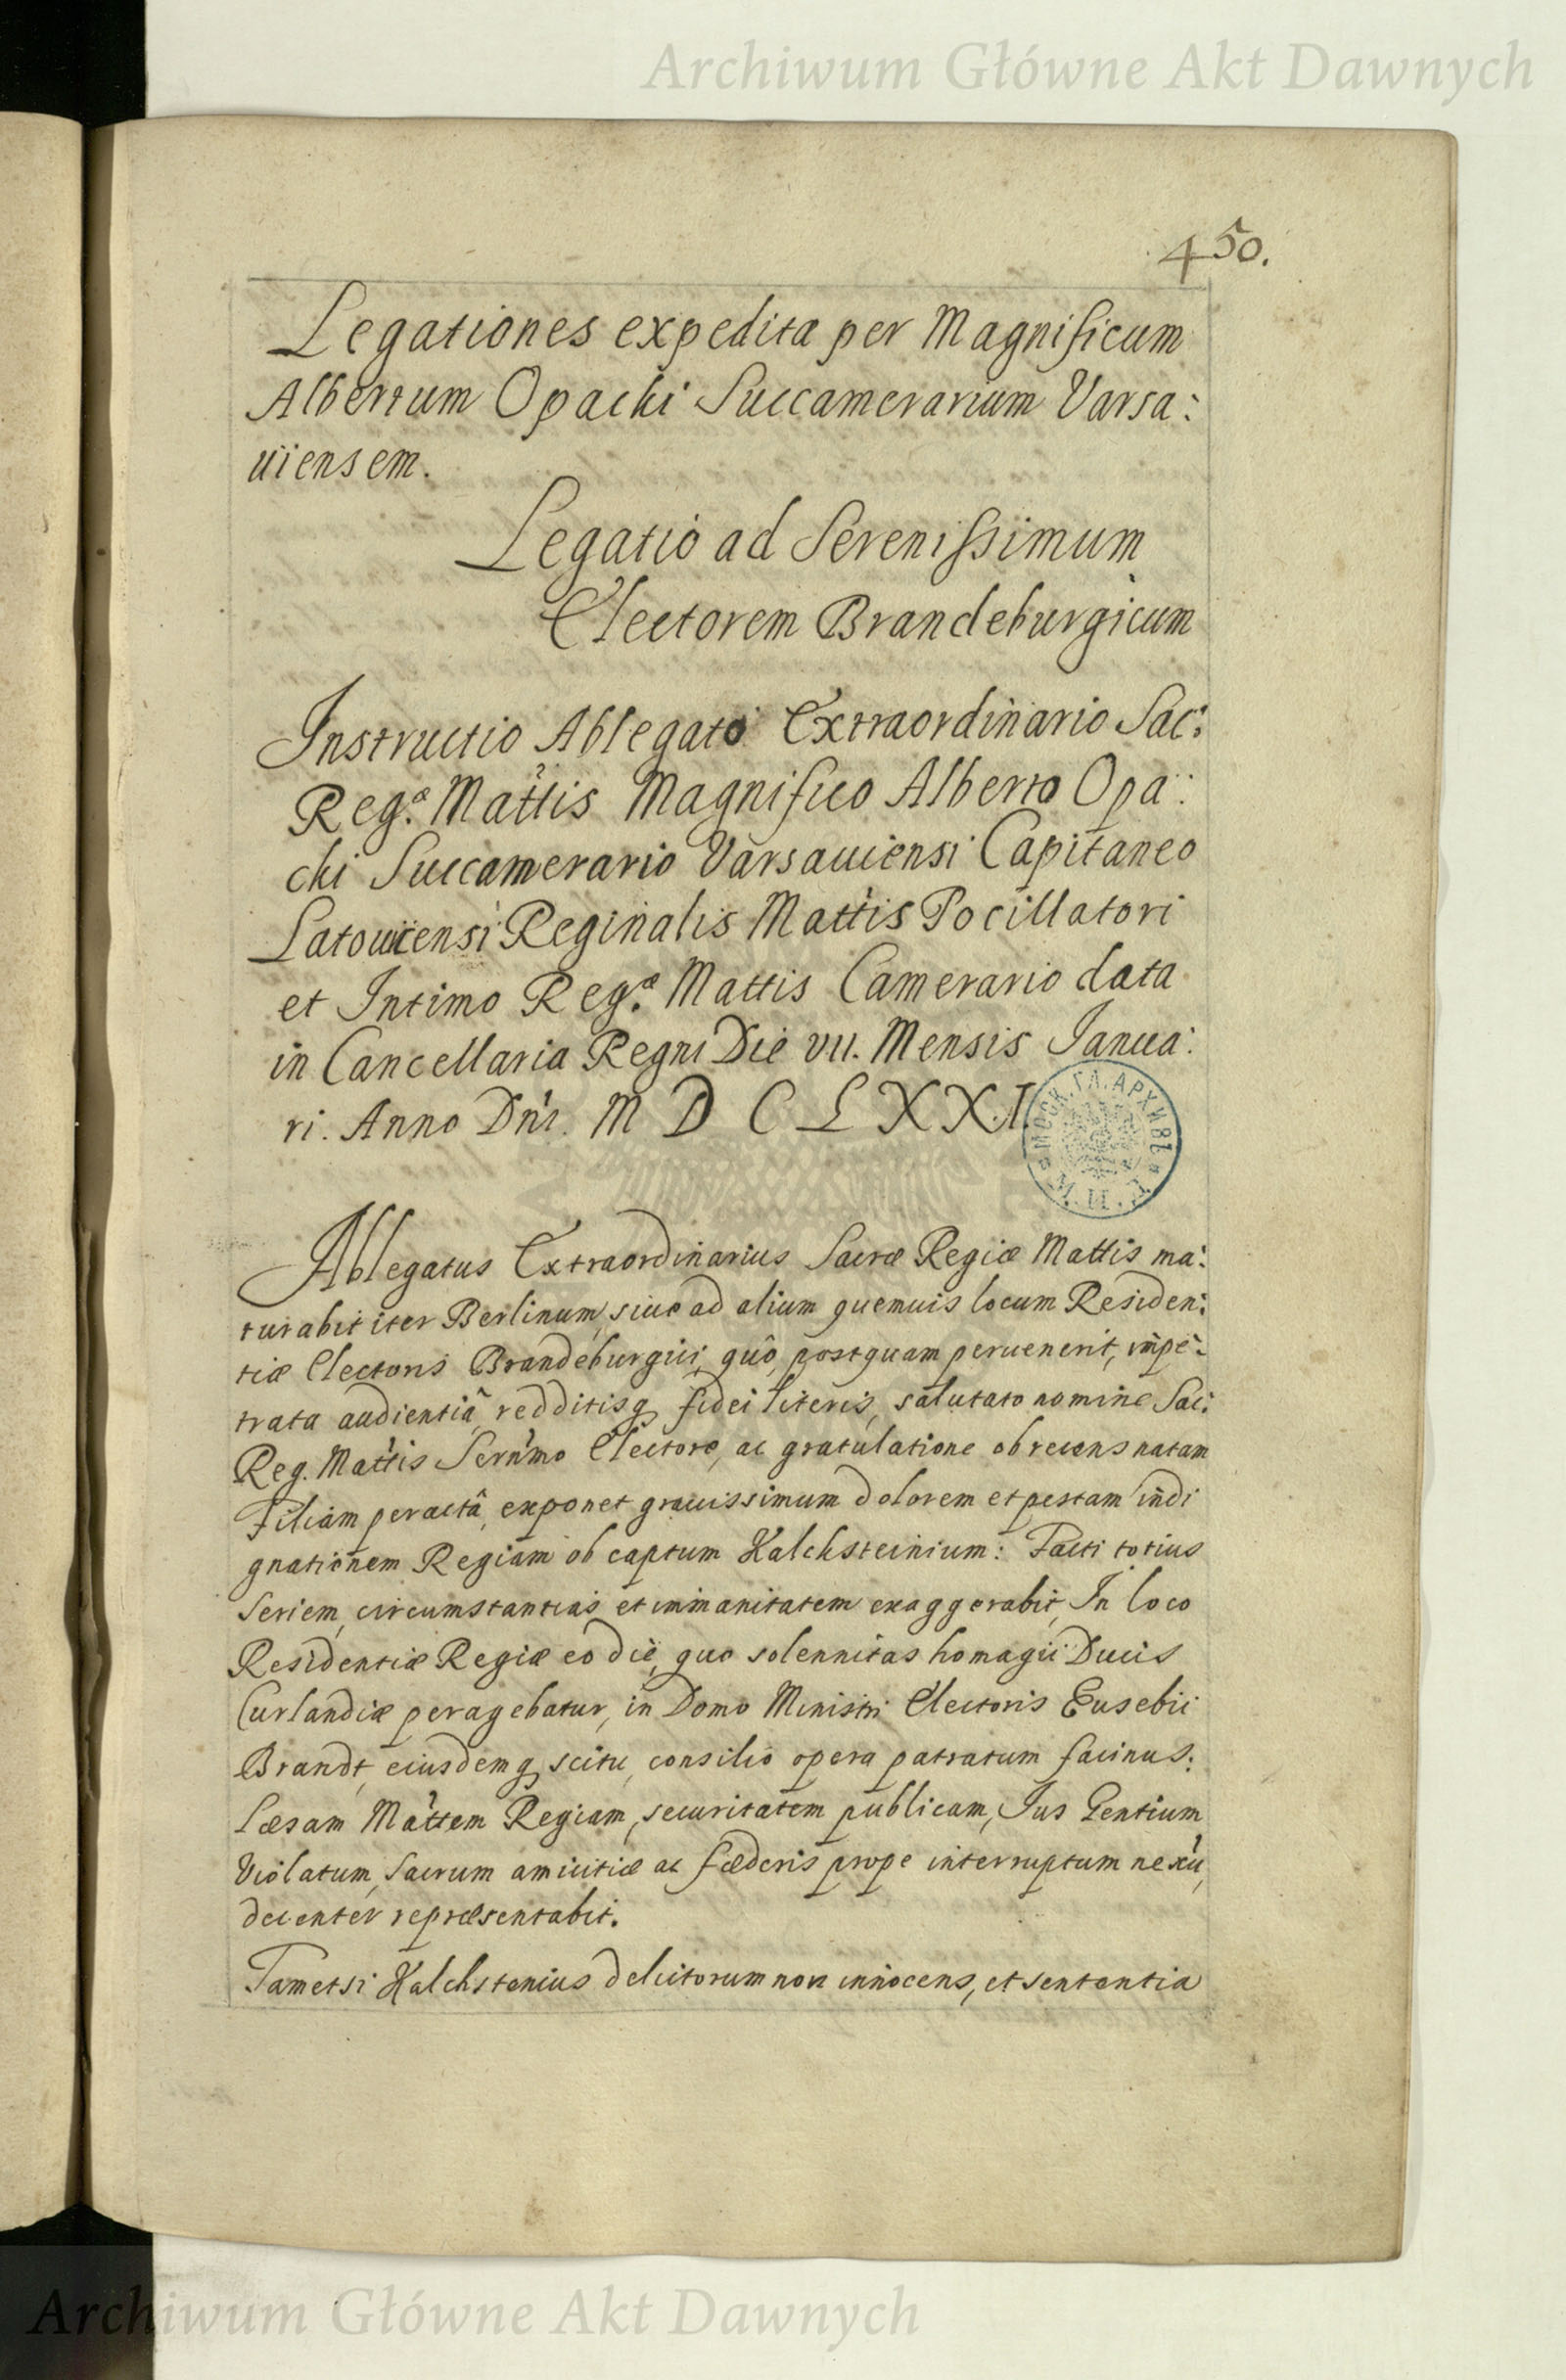 Archiwum Główne Akt Dawnych
450.
Legationes expeditæ per Magnificum
Albertum Opacki Succamerarium Varsa:
uiensem.
Legatio ad Serenissimum
Electorem Brandeburgicum
Instructio Ablegato Extraordinario Sac:
Reg.æ Mattis Magnifico Alberto Opa:
cki Succamerario Varsauiensi Capitaneo
Latouicensi Reginalis Mattis Pocillatori
et Intimo Reg.æ Mattis Camerario data
in Cancellaria Regni Die VII. Mensis Ianua:
ri. Anno Dni. M D C L X X I.
МОСК. ГЛ. АРХИВЪ
М. И. Д.
Ablegatus Extraordinarius Sacræ Regiæ Mattis ma:
turabit iter Berlinum, siue ad alium quemuis locum Residen:
tiæ Electoris Brandeburgici, quô, postquam peruenerit, impe:
trata audientiâ, redditisq fidei literis, salutato nomine Sac:
Reg. Mattis Sernmo Electore, ac gratulatione ob recens natam
Filiam peractâ, exponet grauissimum dolorem et iestam indi
gnationem Regiam ob captum Kalchsteinium: Facti totius
Seriem, circumstantias et immanitatem exaggerabit, In loco
Residentiæ Regiæ eo die, quo solennitas homagii Ducis
Curlandiæ peragebatur, in Domo Ministri Electoris Eusebii
Brandt, eiusdemq scitu, consilio opera patratum facinus:
læsam Mattem Regiam, securitatem publicam, Jus Gentium
Violatum, Sacrum amicitiæ ac fœderis prope interruptum nexũ,
decenter repræsentabit.
Tametsi Kalchstenius delictorum non innocens, et sententia
Archiwum Główne Akt Dawnych